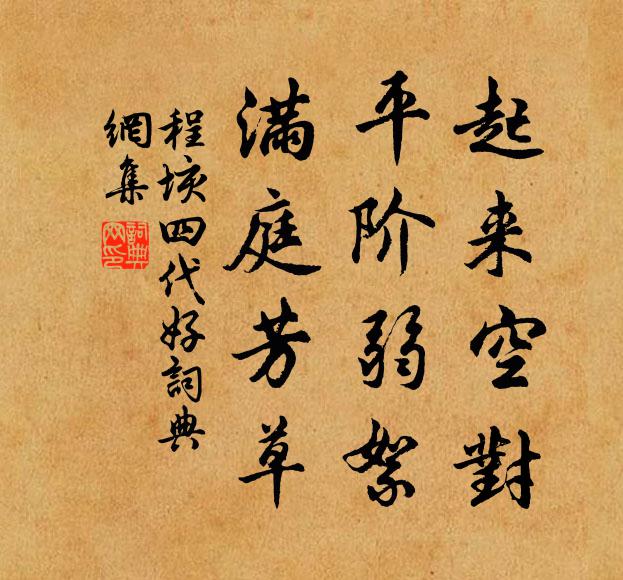 起来空對
平阶弱絮
满庭芳草
程垓四代好詞典
網集
詞典
网印